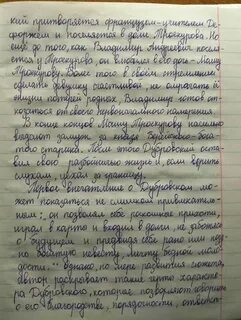 кий притворяется французом-учителем Де-
форжем и поселяется в доме Троекурова. Но
ещё до того, как Владимир Андреевич посел-
ится у Троекурова, он влюбился в его дочь - Машу
Троекурову. Более того в своём стремлении
сделать девушку счастливой, не омрачать её
жизни потерей родных, Владимир готов от-
казаться от своего первоначального намерения.
В конце концов Машу Троекурову насильно
выдают замуж за князя Верейского - бога-
того старика. После этого Дубровский остав-
ил свою разбойничью жизнь и, если верить
слухам, уехал за границу.
Первое впечатление о Дубровском мо-
жет показаться не слишком привлекатель-
ным: „он позволял себе роскошные прихоти,
играл в карты и входил в долги, не заботясь
о будущем и предвидя себе рано или поз-
но богатую невесту, мечту бедной моло-
дости." Однако, по мере развития сюжета,
автор раскрывает такие черты характе-
ра Дубровского, которые позволяют говорить
о его благородстве, порядочности, ответст-